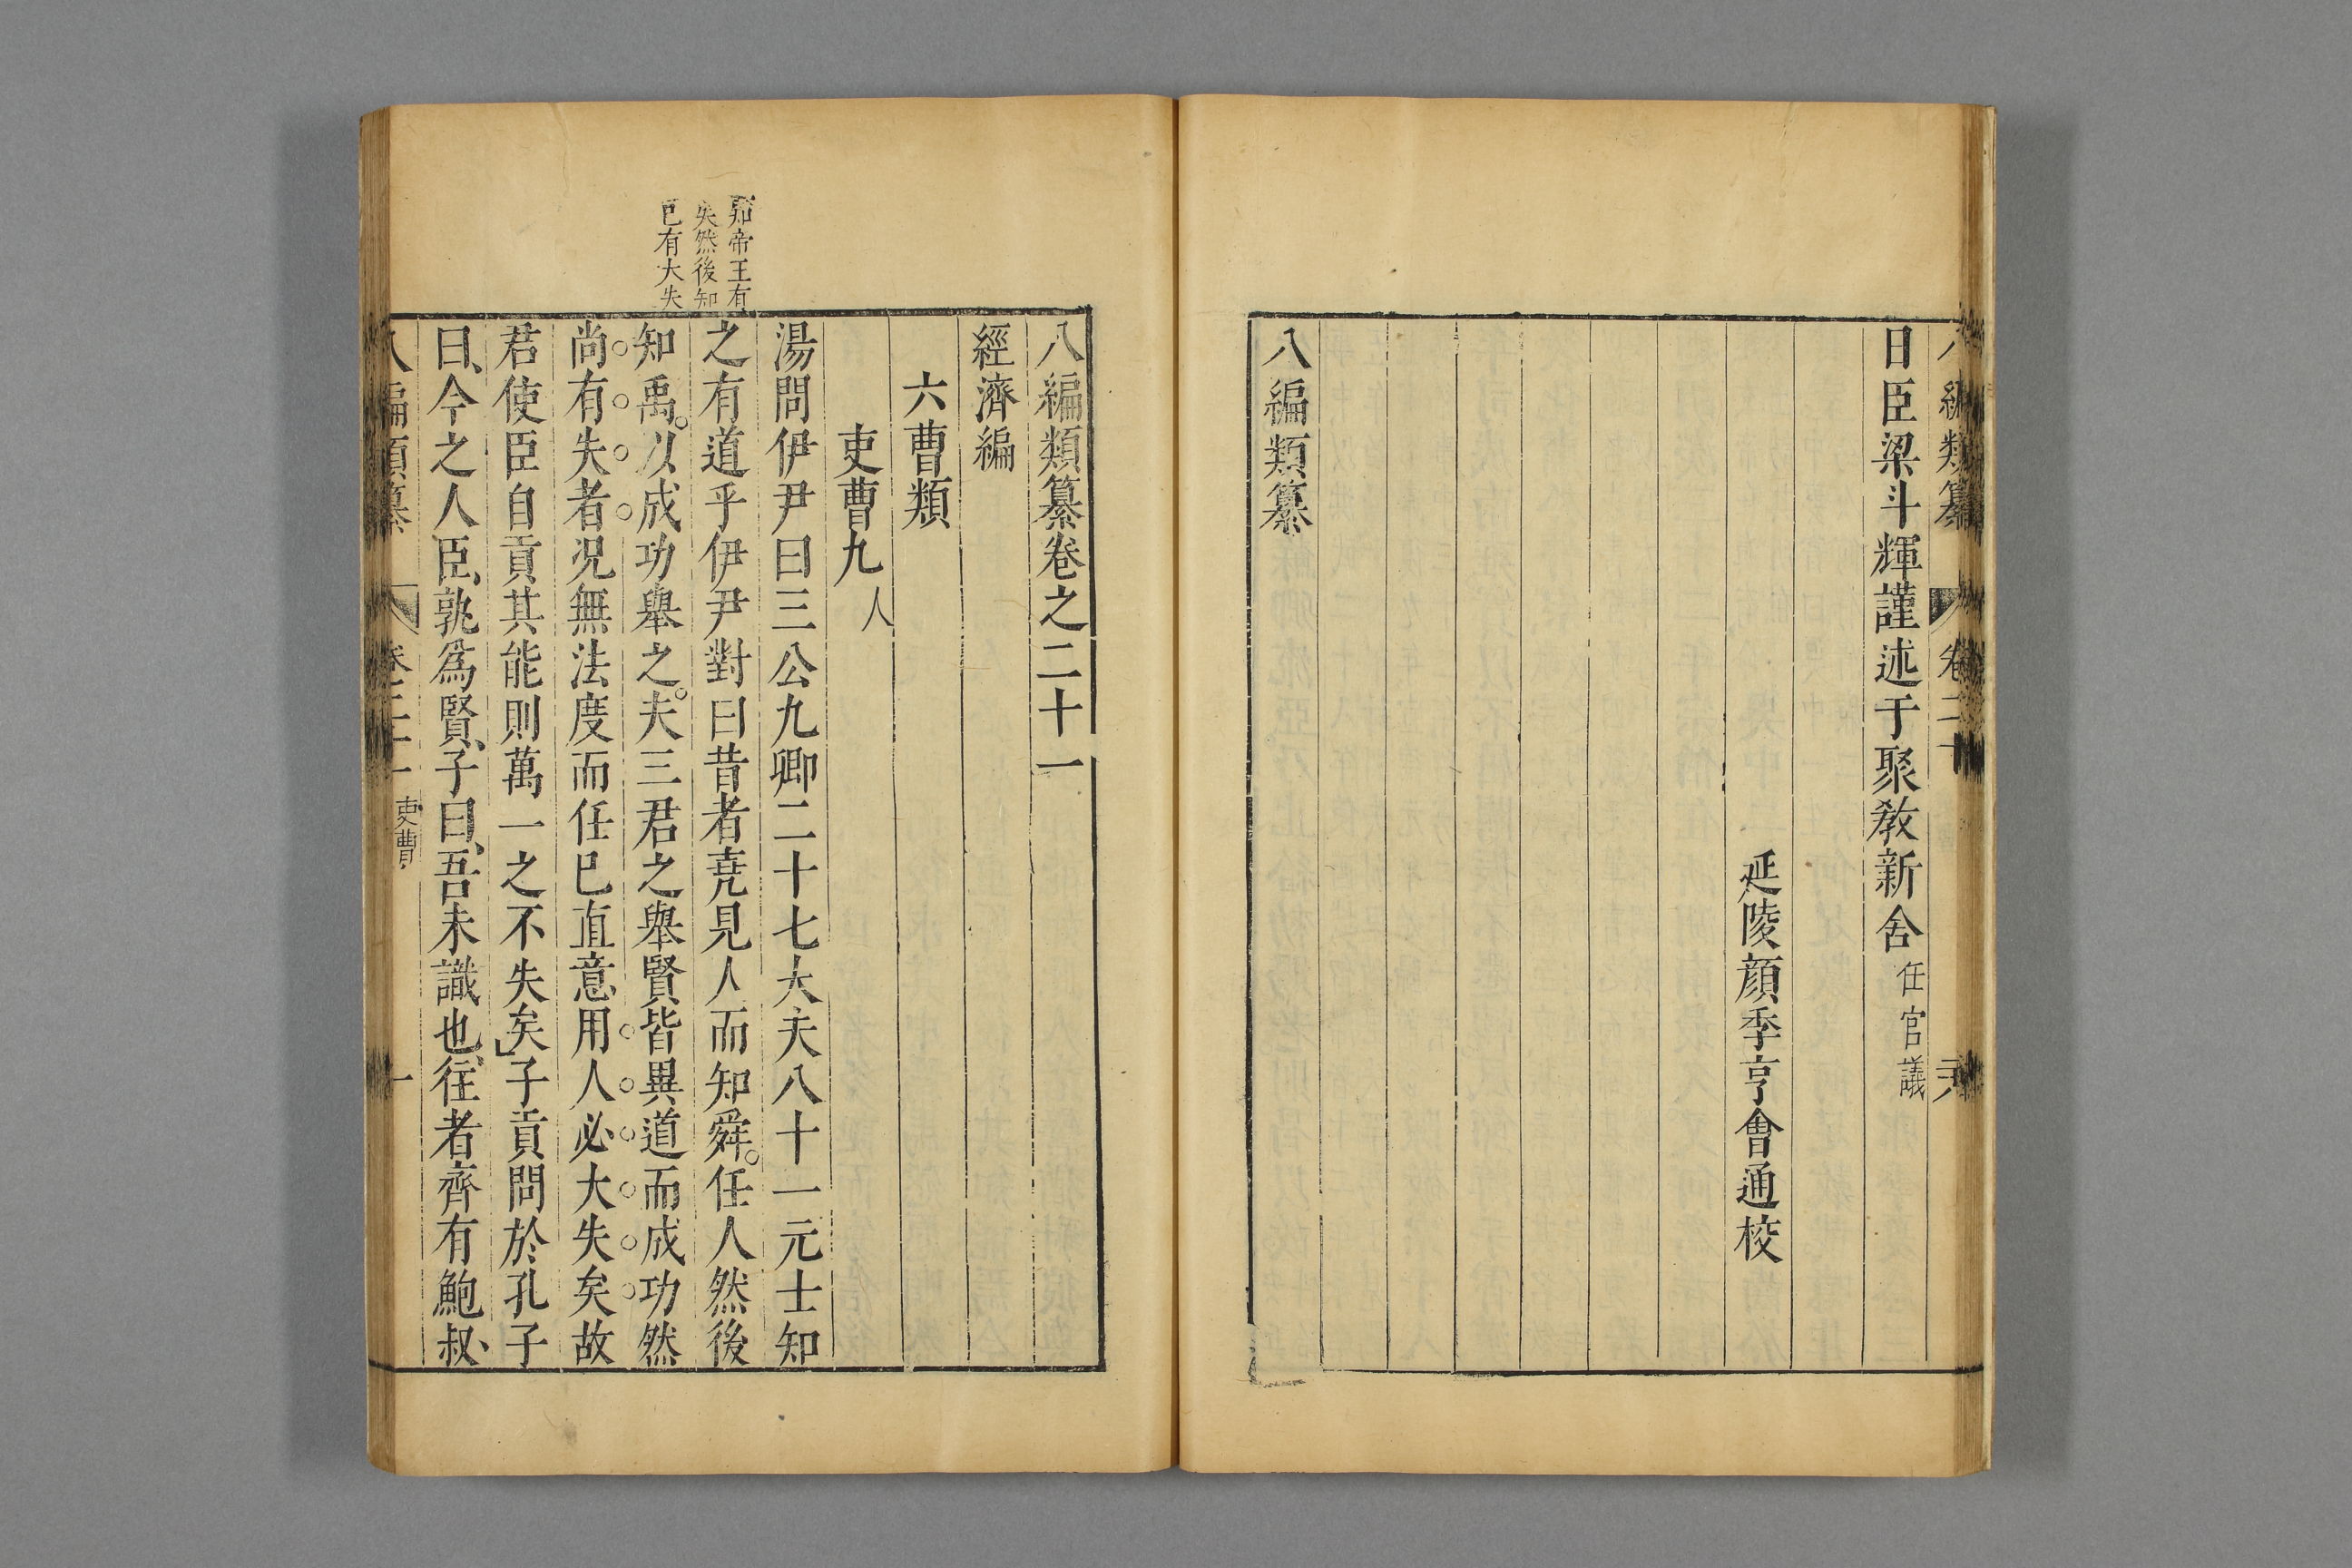 八編類纂 卷二十 三八
日臣梁斗輝謹述于聚教新舍任官議
延陵顔季亨會通校
八編類纂
八編類纂卷之二十一
經濟編
六曹類
吏曹九人
湯問伊尹曰三公九卿二十七大夫八十一元士知
之有道乎伊尹對曰昔者堯見人而知舜任人然後
知禹以成功舉之夫三君之舉賢皆異道而成功然
尚有失者况無法度而任巳直意用人必大失矣故
君使臣自貢其能則萬一之不失矣子貢問於孔子
曰今之人臣孰爲賢子曰吾未識也往者齊有鮑叔
知帝王有
失然後知
巳有大失
八編類纂 卷二十一 吏曹 一